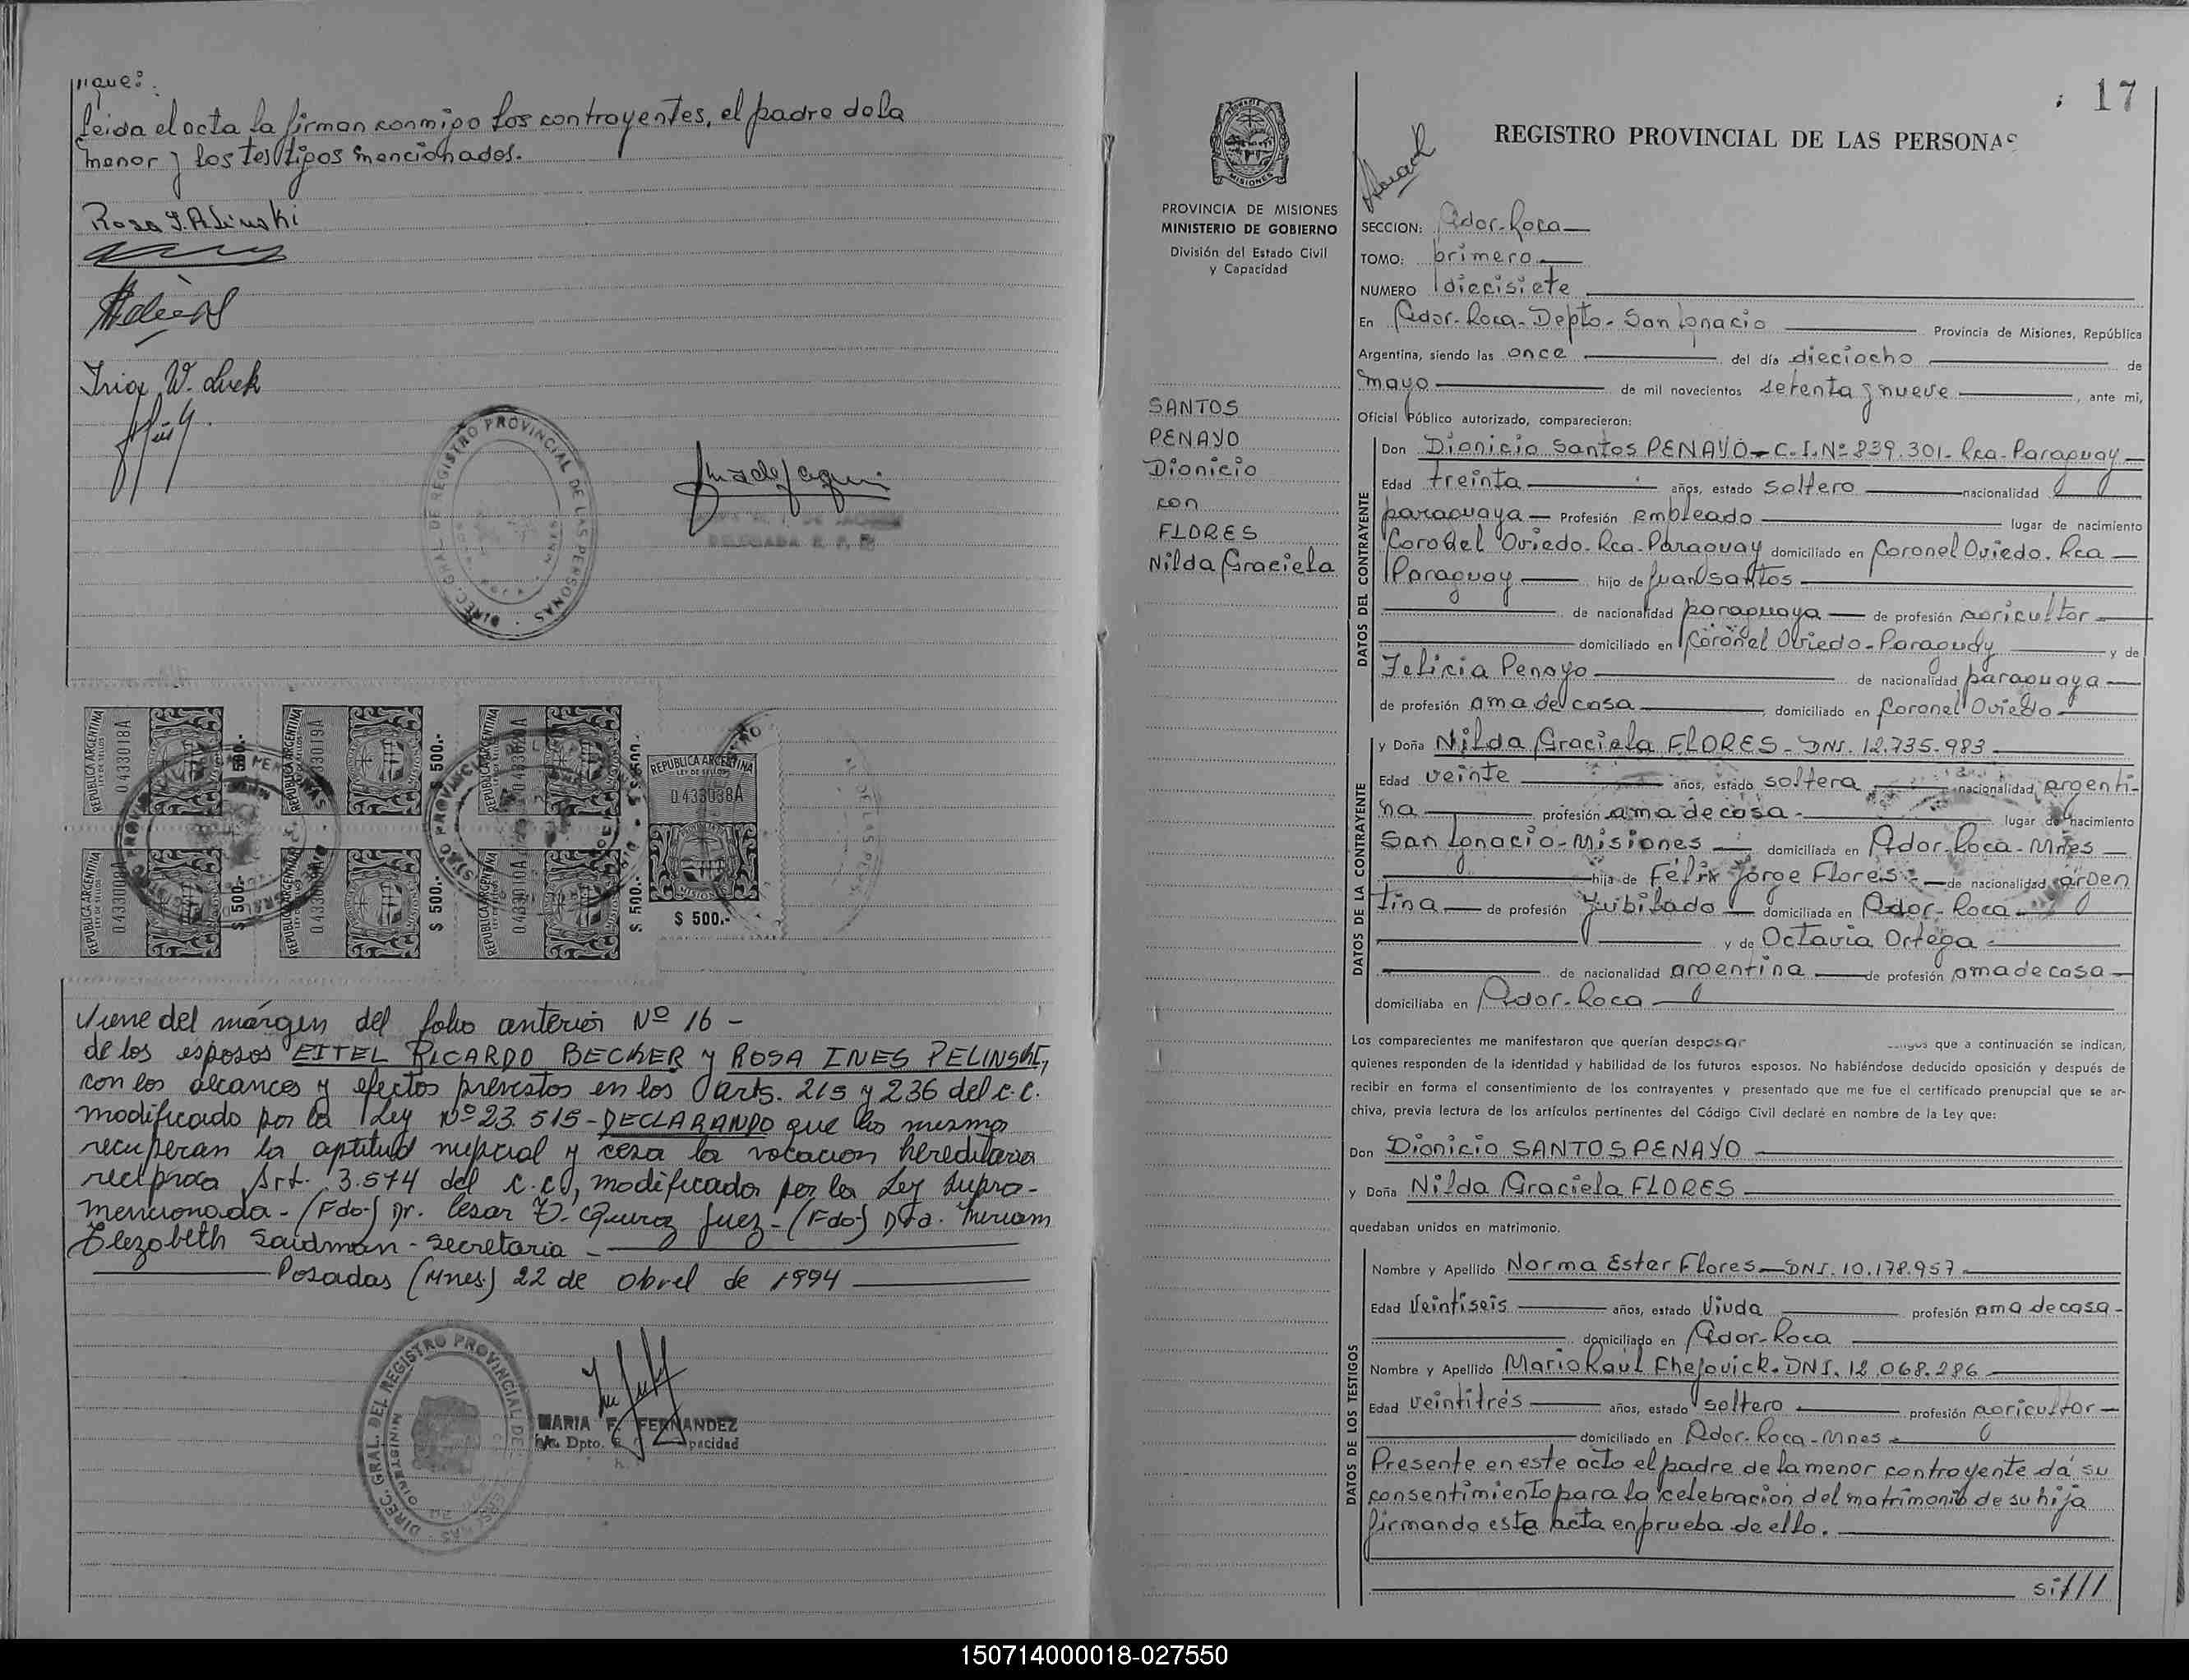 Leida el acta la firman conmigo los contrayentes, el padre de la
menor y los testigos mencionados.
Irica W. Luck
REGISTRO PROVINCIAL DE LAS PERSONAS
DIREC. GRAL.
REPUBLICA ARGENTINA
0433018A
$ 500.-
REPUBLICA ARGENTINA
$ 500.-
REPUBLICA ARGENTINA
REPUBLICA ARGENTINA
LEY DE SELLOS
0433038A
MISIONES
$ 500.-
REPUBLICA ARGENTINA
$ 500.-
REPUBLICA ARGENTINA
$ 500.-
REPUBLICA ARGENTINA
0433010A
$ 500.-
Viene del márgen del folio anterior Nº 16 -
de los esposos EITEL RICARDO BECKER y ROSA INES PELINSKI,
con los alcances y efectos previstos en los arts. 215 y 236 del c.c.
modificado por la Ley Nº 23.515 - DECLARANDO que los mismos
recuperan la aptitud nupcial y cesa la vocacion hereditaria
reciproca Art. 3.574 del c.c., modificador por la Ley supra-
mencionada - (Fdo-) Dr. Cesar Juez - (Fdo-) Dra. Miriam
Elezabeth Saidman - Secretaria -
Posadas (Mnes.) 22 de Abril de 1994
DIREC. GRAL. DEL REGISTRO PROVINCIAL DE
MARIA F. FERNANDEZ
Dpto.
17
MISIONES
REGISTRO PROVINCIAL DE LAS PERSONAS
PROVINCIA DE MISIONES
MINISTERIO DE GOBIERNO
División del Estado Civil
y Capacidad
SANTOS
PENAYO
Dionicio
con
FLORES
Nilda Graciela
SECCION: Gdor. Roca
TOMO: primero
NUMERO diecisiete
En Gdor. Roca - Depto - San Ignacio Provincia de Misiones, República
Argentina, siendo las once del día dieciocho de
mayo de mil novecientos setenta y nueve, ante mi,
Oficial Público autorizado, comparecieron:
DATOS DEL CONTRAYENTE
Don Dionicio Santos PENAYO - C.I. Nº 839.301 - Rca. Paraguay
Edad treinta años, estado soltero nacionalidad
paraguaya Profesión empleado lugar de nacimiento
Coronel Oviedo. Rca. Paraguay domiciliado en Coronel Oviedo. Rca
Paraguay hijo de Juan Santos
de nacionalidad paraguaya de profesión agricultor
domiciliado en Coronel Oviedo - Paraguay y de
Felicia Penayo de nacionalidad paraguaya
de profesión ama de casa, domiciliado en Coronel Oviedo
DATOS DE LA CONTRAYENTE
y Doña Nilda Graciela FLORES - DNI. 12.735.983
Edad veinte años, estado soltera nacionalidad argenti-
na profesión ama de casa - lugar de nacimiento
San Ignacio - Misiones domiciliada en Gdor. Roca - Mnes
hija de Félix Jorge Flores - de nacionalidad argen
tina de profesión Jubilado domiciliada en Gdor. Roca
y de Octavia Ortega
de nacionalidad argentina de profesión ama de casa
domiciliaba en Gdor. Roca
Los comparecientes me manifestaron que querían desposar que a continuación se indican,
quienes responden de la identidad y habilidad de los futuros esposos. No habiéndose deducido oposición y después de
recibir en forma el consentimiento de los contrayentes y presentado que me fue el certificado prenupcial que se ar-
chiva, previa lectura de los artículos pertinentes del Código Civil declaré en nombre de la Ley que:
Don Dionicio SANTOS PENAYO
y Doña Nilda Graciela FLORES
quedaban unidos en matrimonio.
DATOS DE LOS TESTIGOS
Nombre y Apellido Norma Ester Flores - DNI. 10.178.957
Edad Veintiseis años, estado Viuda profesión ama de casa -
domiciliado en Gdor. Roca
Nombre y Apellido Mario Raúl Chejovick. DNI. 12.068.286
Edad veintitrés años, estado soltero profesión agricultor
domiciliado en Gdor. Roca - Mnes
Presente en este acto el padre de la menor contrayente dá su
consentimiento para la celebracion del matrimonio de su hija
firmando esta acta en prueba de ello.
si///
150714000018-027550